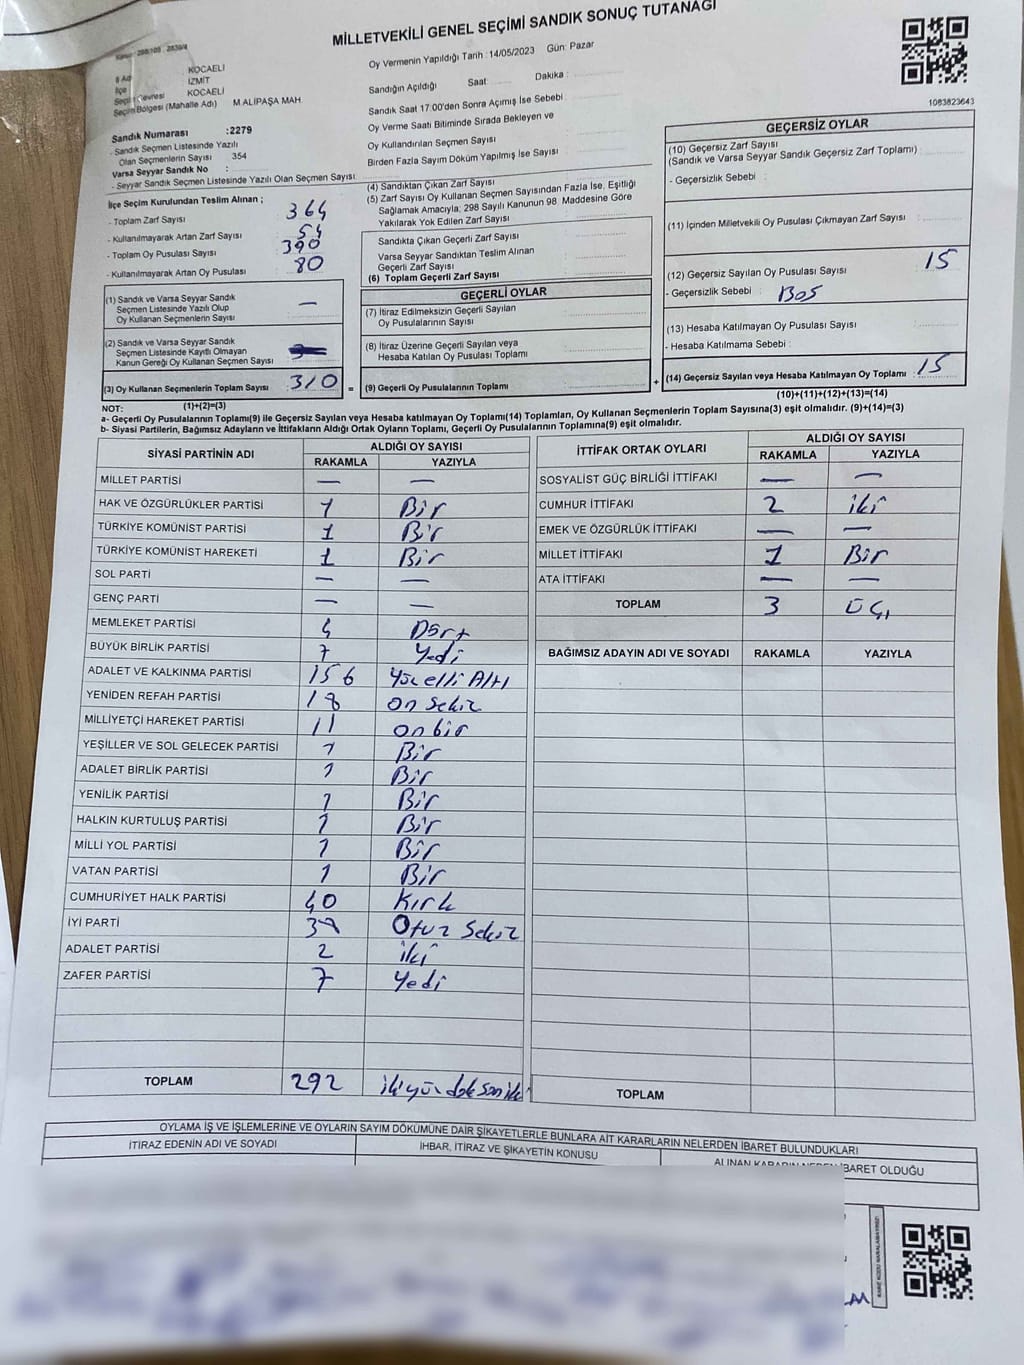 MİLLETVEKİLİ GENEL SEÇİMİ SANDIK SONUÇ TUTANAĞI
İl Adı : KOCAELİ
İlçe : İZMİT
Seçim Çevresi : KOCAELİ
Seçim Bölgesi (Mahalle Adı) M ALİPAŞA MAH
Sandık Numarası :2279
- Sandık Seçmen Listesinde Yazılı
Olan Seçmenlerin Sayısı 354
Varsa Seyyar Sandık No :
- Seyyar Sandık Seçmen Listesinde Yazılı Olan Seçmen Sayısı:
Oy Vermenin Yapıldığı Tarih :14/05/2023 Gün: Pazar
Sandığın Açıldığı Saat: Dakika :
Sandık Saat 17:00'den Sonra Açımış İse Sebebi :
Oy Verme Saati Bitiminde Sırada Bekleyen ve
Oy Kullandırılan Seçmen Sayısı
Birden Fazla Sayım Döküm Yapılmış İse Sayısı :
1083823643
İlçe Seçim Kurulundan Teslim Alınan ;
- Toplam Zarf Sayısı 364
- Kullanılmayarak Artan Zarf Sayısı 54
- Toplam Oy Pusulası Sayısı 390
- Kullanılmayarak Artan Oy Pusulası 80
(1) Sandık ve Varsa Seyyar Sandık
Seçmen Listesinde Yazılı Olup
Oy Kullanan Seçmenlerin Sayısı —
(2) Sandık ve Varsa Seyyar Sandık
Seçmen Listesinde Kayıtlı Olmayan
Kanun Gereği Oy Kullanan Seçmen Sayısı
(3) Oy Kullanan Seçmenlerin Toplam Sayısı 310 =
(1)+(2)=(3)
(4) Sandıktan Çıkan Zarf Sayısı
(5) Zarf Sayısı Oy Kullanan Seçmen Sayısından Fazla İse, Eşitliği
Sağlamak Amacıyla; 298 Sayılı Kanunun 98. Maddesine Göre
Yakılarak Yok Edilen Zarf Sayısı
Sandıkta Çıkan Geçerli Zarf Sayısı
Varsa Seyyar Sandıktan Teslim Alınan
Geçerli Zarf Sayısı
(6) Toplam Geçerli Zarf Sayısı
GEÇERLİ OYLAR
(7) İtiraz Edilmeksizin Geçerli Sayılan
Oy Pusulalarının Sayısı
(8) İtiraz Üzerine Geçerli Sayılan veya
Hesaba Katılan Oy Pusulası Toplamı
(9) Geçerli Oy Pusulalarının Toplamı +
GEÇERSİZ OYLAR
(10) Geçersiz Zarf Sayısı
(Sandık ve Varsa Seyyar Sandık Geçersiz Zarf Toplamı) :
- Geçersizlik Sebebi :
(11) İçinden Milletvekili Oy Pusulası Çıkmayan Zarf Sayısı
(12) Geçersiz Sayılan Oy Pusulası Sayısı 15
- Geçersizlik Sebebi : Boş
(13) Hesaba Katılmayan Oy Pusulası Sayısı
- Hesaba Katılmama Sebebi :
(14) Geçersiz Sayılan veya Hesaba Katılmayan Oy Toplamı : 15
(10)+(11)+(12)+(13)=(14)
NOT:
a- Geçerli Oy Pusulalarının Toplamı(9) ile Geçersiz Sayılan veya Hesaba katılmayan Oy Toplamı(14) Toplamları, Oy Kullanan Seçmenlerin Toplam Sayısına(3) eşit olmalıdır. (9)+(14)=(3)
b- Siyasi Partilerin, Bağımsız Adayların ve İttifakların Aldığı Ortak Oyların Toplamı, Geçerli Oy Pusulalarının Toplamına(9) eşit olmalıdır.
SİYASİ PARTİNİN ADI ALDIĞI OY SAYISI
RAKAMLA YAZIYLA
MİLLET PARTİSİ — —
HAK VE ÖZGÜRLÜKLER PARTİSİ 1 Bir
TÜRKİYE KOMÜNİST PARTİSİ 1 Bir
TÜRKİYE KOMÜNİST HAREKETİ 1 Bir
SOL PARTİ — —
GENÇ PARTİ — —
MEMLEKET PARTİSİ 4 Dört
BÜYÜK BİRLİK PARTİSİ 7 Yedi
ADALET VE KALKINMA PARTİSİ 156 Yüz elli Altı
YENİDEN REFAH PARTİSİ 18 on sekiz
MİLLİYETÇİ HAREKET PARTİSİ 11 onbir
YEŞİLLER VE SOL GELECEK PARTİSİ 1 Bir
ADALET BİRLİK PARTİSİ 1 Bir
YENİLİK PARTİSİ 1 Bir
HALKIN KURTULUŞ PARTİSİ 1 Bir
MİLLİ YOL PARTİSİ 1 Bir
VATAN PARTİSİ 1 Bir
CUMHURİYET HALK PARTİSİ 40 Kırk
İYİ PARTİ 38 Otuz Sekiz
ADALET PARTİSİ 2 iki
ZAFER PARTİSİ 7 Yedi
TOPLAM 292 ikiyüz doksan iki
İTTİFAK ORTAK OYLARI ALDIĞI OY SAYISI
RAKAMLA YAZIYLA
SOSYALİST GÜÇ BİRLİĞİ İTTİFAKI — —
CUMHUR İTTİFAKI 2 iki
EMEK VE ÖZGÜRLÜK İTTİFAKI — —
MİLLET İTTİFAKI 1 Bir
ATA İTTİFAKI — —
TOPLAM 3 üç
BAĞIMSIZ ADAYIN ADI VE SOYADI RAKAMLA YAZIYLA
TOPLAM
OYLAMA İŞ VE İŞLEMLERİNE VE OYLARIN SAYIM DÖKÜMÜNE DAİR ŞİKAYETLERLE BUNLARA AİT KARARLARIN NELERDEN İBARET BULUNDUKLARI
İTİRAZ EDENİN ADI VE SOYADI İHBAR, İTİRAZ VE ŞİKAYETİN KONUSU ALINAN KARARIN NEDEN İBARET OLDUĞU